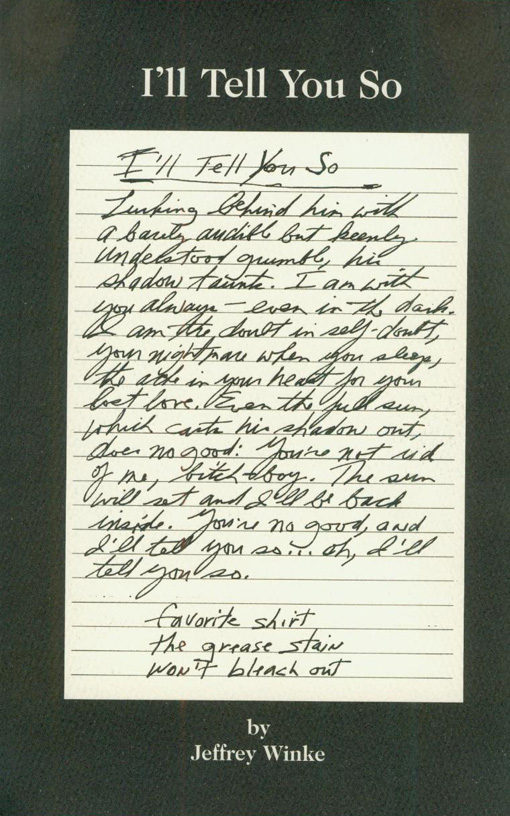 I'll Tell You So
I'll Tell You So
Lurking behind him with
a barely audible but keenly
understood grumble, his
shadow taunts. I am with
you always – even in the dark.
I am the doubt in self-doubt,
your nightmare when you sleep,
the ache in your heart for your
lost love. Even the full sun,
which casts his shadow out,
does no good: You're not rid
of me, bitch boy. The sun
will set and I'll be back
inside. You're no good, and
I'll tell you so... oh, I'll
tell you so.
favorite shirt
the grease stain
won't bleach out
by
Jeffrey Winke